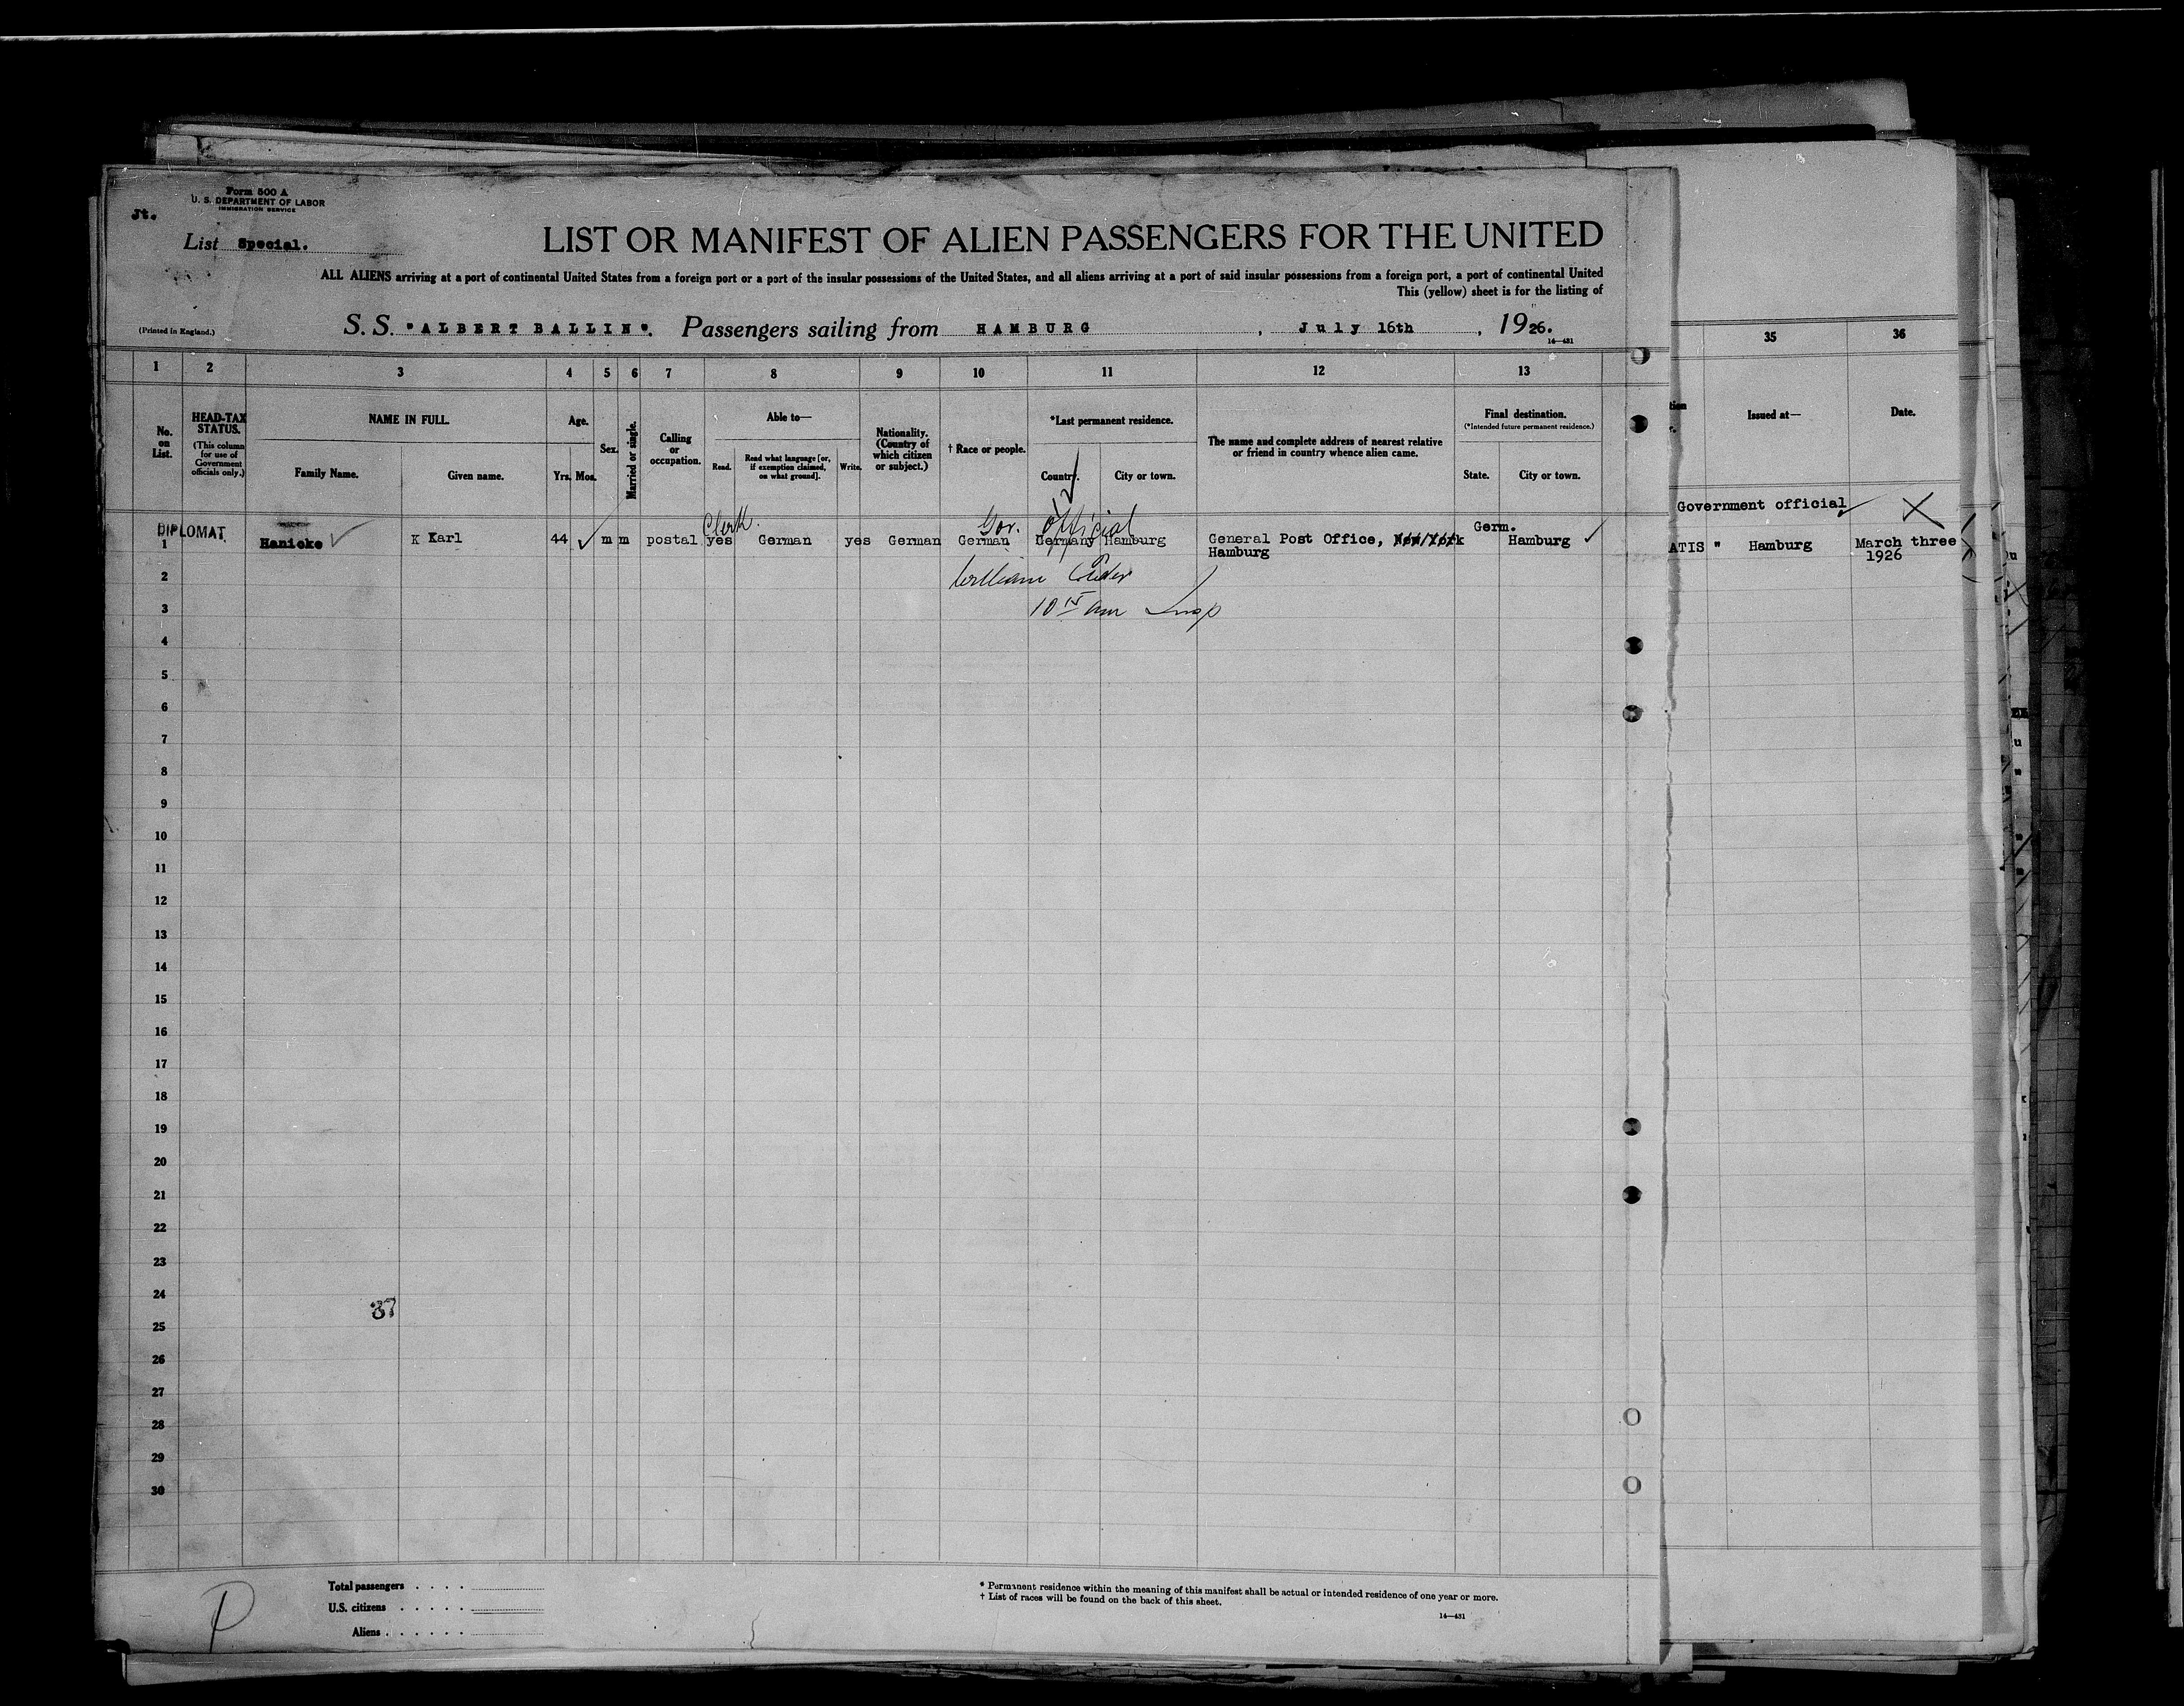 Form 500 A
U. S. DEPARTMENT OF LABOR
IMMIGRATION SERVICE
Jt.
List Special.
LIST OR MANIFEST OF ALIEN PASSENGERS FOR THE UNITED
ALL ALIENS arriving at a port of continental United States from a foreign port or a port of the insular possessions of the United States, and all aliens arriving at a port of said insular possessions from a foreign port, a port of continental United
This (yellow) sheet is for the listing of
(Printed in England.)
S. S. "ALBERT BALLIN". Passengers sailing from HAMBURG, July 16th, 1926.
14—431
1 2 3 4 5 6 7 8 9 10 11 12 13
35 36
No. on List.
HEAD-TAX STATUS.
(This column for use of Government officials only.)
NAME IN FULL.
Family Name. Given name.
Age.
Yrs. Mos.
Sex.
Married or single.
Calling or occupation.
Able to—
Read. Read what language [or, if exemption claimed, on what ground]. Write.
Nationality. (Country of which citizen or subject.)
† Race or people.
*Last permanent residence.
Country. City or town.
The name and complete address of nearest relative or friend in country whence alien came.
Final destination.
(*Intended future permanent residence.)
State. City or town.
Issued at— Date.
Government official
Clerk. Gov. official
DIPLOMAT
1 Hanicke K Karl 44 m m postal yes German yes German German Germany Hamburg General Post Office, Hamburg Germ. Hamburg
ATIS " Hamburg March three 1926
2 William
3 10 15 am Insp
4
5
6
7
8
9
10
11
12
13
14
15
16
17
18
19
20
21
22
23
24
37
25
26
27
28
29
30
Total passengers . . . .
U.S. citizens . . . . .
Aliens . . . . . .
P
* Permanent residence within the meaning of this manifest shall be actual or intended residence of one year or more.
† List of races will be found on the back of this sheet.
14—431